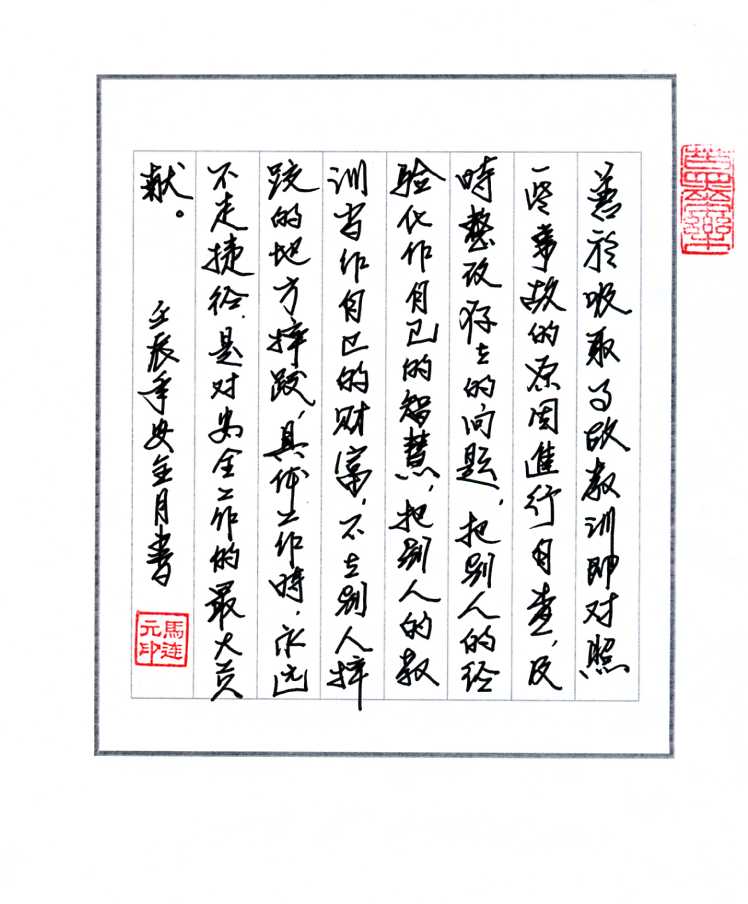 善於吸取事故教训即对照
一些事故的原因進行自查,及
時整改存在的问题,把别人的经
验化作自己的智慧,把别人的教
训当作自己的财富,不在别人摔
跤的地方摔跤,具体工作時,永远
不走捷徑,是对安全工作的最大贡
献。
壬辰年安全月書
馬连元印